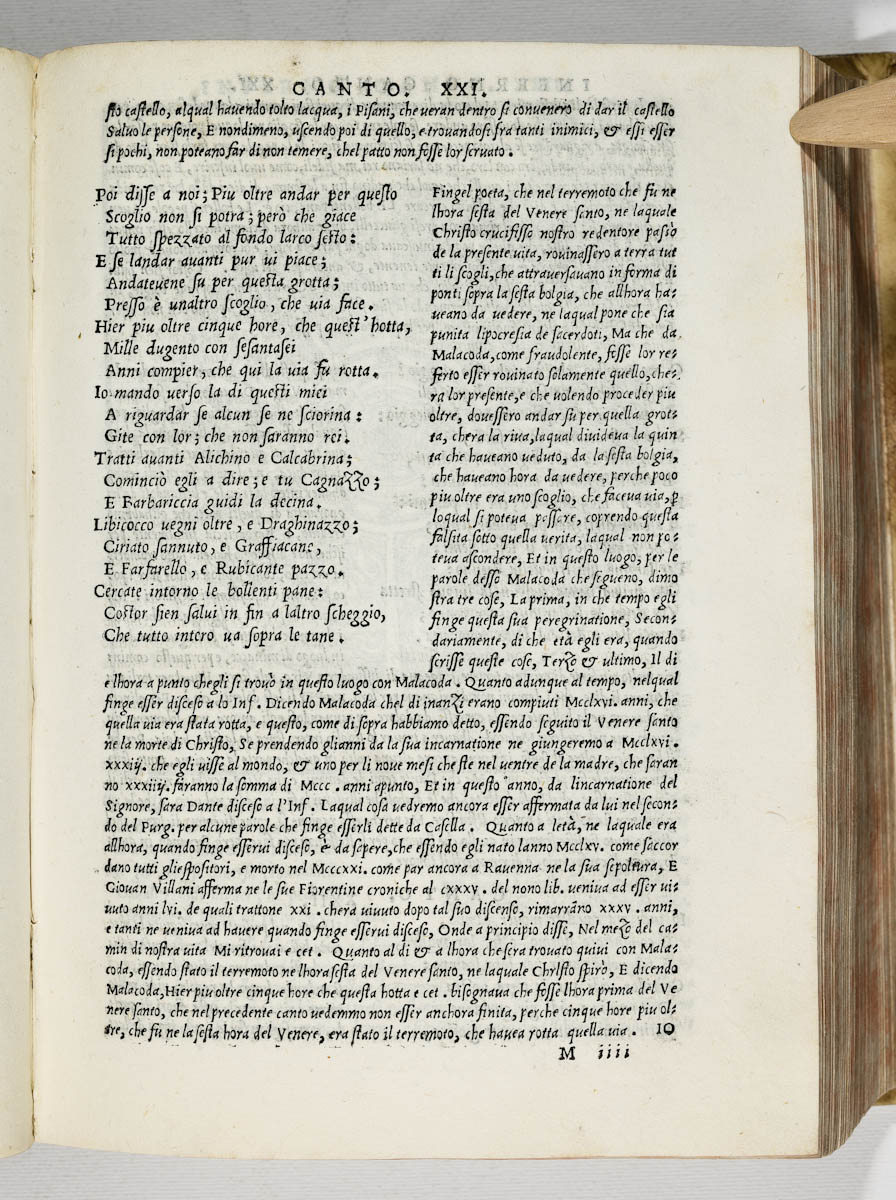 CANTO. XXI.
sto castello, alqual havendo tolto lacqua, i Pisani, che veran dentro si convenero di dar il castello
Salvo le persone, E nondimeno, uscendo poi di quello, e trovandosi fra tanti inimici, & essi esser
si pochi, non poteano far di non temere, chel patto non fosse lor servato.
Poi disse a noi; Piu oltre andar per questo
Scoglio non si potra; però che giace
Tutto spezzato al fondo larco sesto:
E se landar avanti pur ui piace;
Andatevene su per questa grotta;
Presso è unaltro scoglio, che via face.
Hier piu oltre cinque hore, che quest'hotta,
Mille dugento con sesantasei
Anni compier, che qui la via fu rotta.
Io mando verso la di questi miei
A riguardar se alcun se ne sciorina:
Gite con lor; che non saranno rei.
Tratti avanti Alichino e Calcabrina;
Cominciò egli a dire; e tu Cagnazzo;
E Barbariccia guidi la decina.
Libicocco uegni oltre, e Draghinazzo;
Ciriato sannuto, e Graffiacane,
E Farfarello, e Rubicante pazzo.
Cercate intorno le bollenti pane:
Costor sien salui in fin a laltro scheggio,
Che tutto intero va sopra le tane.
Fingel poeta, che nel terremoto che fu ne
lhora sesta del Venere santo, ne laquale
Christo crucifisso nostro redentore passò
de la presente vita, rovinassero a terra tut
ti li scogli, che attraversavano in forma di
ponti sopra la sesta bolgia, che allhora ha-
veano da vedere, ne laqual pone che sia
punita lipocresia de sacerdoti, Ma che da
Malacoda, come fraudolente, fosse lor re-
ferto esser rovinato solamente quello, che-
ra lor presente, e che volendo proceder piu
oltre, dovessero andar su per quella grot-
ta, chera la riva, laqual divideva la quin
ta che haveano veduto, da la sesta bolgia,
che haveano hora da vedere, perche poco
piu oltre era uno scoglio, che faceva via, p
loqual si poteva passare, coprendo questa
falsita sotto quella verita, laqual non po-
teva ascondere, Et in questo luogo, per le
parole desso Malacoda che segueno, dimo
stra tre cose, La prima, in che tempo egli
finge questa sua peregrinatione, Secon-
dariamente, di che età egli era, quando
scrisse queste cose, Terzo & ultimo, Il di
e lhora a punto chegli si trovò in questo luogo con Malacoda. Quanto adunque al tempo, nelqual
finge esser disceso a lo Inf. Dicendo Malacoda chel di inanzi erano compiuti Mcclxvi. anni, che
quella via era stata rotta, e questo, come di sopra habbiamo detto, essendo seguito il Venere santo
ne la morte di Christo, Se prendendo glianni da la sua incarnatione ne giungeremo a Mcclxvi.
xxxiij. che egli visse al mondo, & uno per li nove mesi che ste nel ventre de la madre, che saran
no xxxiiij. faranno la somma di Mccc. anni apunto, Et in questo anno, da lincarnatione del
Signore, sara Dante disceso a l'Inf. Laqual cosa vedremo ancora esser affermata da lui nel secon-
do del Purg. per alcune parole che finge esserli dette da Casella. Quanto a letà, ne laquale era
allhora, quando finge esserui disceso, è da sapere, che essendo egli nato lanno Mcclxv. come saccor
dano tutti gliespositori, e morto nel Mcccxxi. come par ancora a Ravenna ne la sua sepoltura, E
Giouan Villani afferma ne le sue Fiorentine croniche al cxxxv. del nono lib. ueniva ad esser ui-
uuto anni lvi. de quali trattone xxi. chera uiuuto dopo tal suo discenso, rimarranno xxxv. anni,
e tanti ne veniva ad havere quando finge esserui disceso, Onde a principio disse, Nel mezo del ca-
min di nostra vita Mi ritrovai e cet. Quanto al di & a lhora che sera trovato quivi con Mala-
coda, essendo stato il terremoto ne lhora sesta del Venere santo, ne laquale Christo spirò, E dicendo
Malacoda, Hier piu oltre cinque hore che questa hotta e cet. bisognava che fosse lhora prima del Ve
nere santo, che nel precedente canto vedemmo non esser anchora finita, perche cinque hore piu ol-
tre, che fu ne la sesta hora del Venere, era stato il terremoto, che havea rotta quella via. IO
M iiii